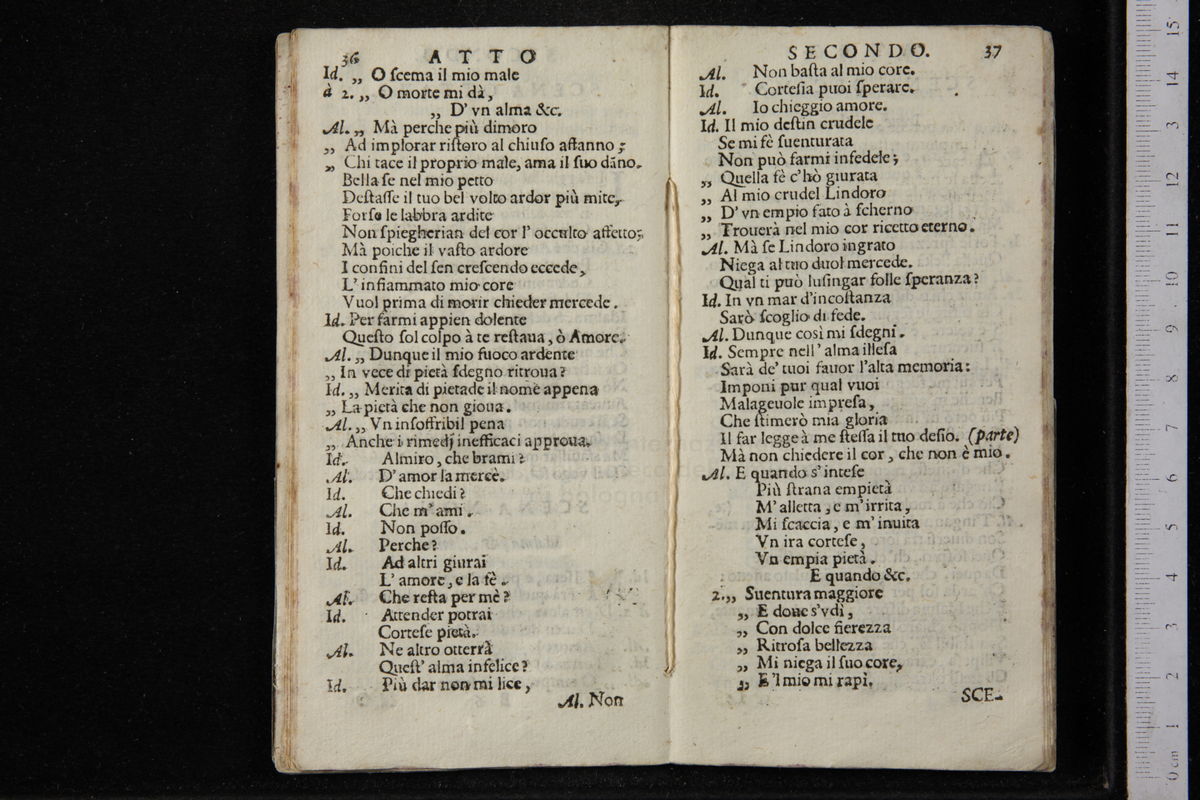 36 ATTO
Id. ,, O ſcema il mio male
à 2. ,, O morte mi dà,
,, D' vn alma &c.
Al. ,, Mà perche più dimoro
,, Ad implorar riſtoro al chiuſo affanno;
,, Chi tace il proprio male, ama il ſuo dãno.
Bella ſe nel mio petto
Deſtaſſe il tuo bel volto ardor più mite,
Forſe le labbra ardite
Non ſpiegherian del cor l' occulto affetto;
Mà poiche il vaſto ardore
I confini del ſen creſcendo eccede,
L' infiammato mio core
Vuol prima di morir chieder mercede.
Id. Per farmi appien dolente
Queſto ſol colpo à te reſtaua, ò Amore.
Al. ,, Dunque il mio fuoco ardente
,, In vece di pietà ſdegno ritroua?
Id. ,, Merita di pietade il nome appena
,, La pietà che non gioua.
Al. ,, Vn inſoffribil pena
,, Anche i rimedj inefficaci approua.
Id. Almiro, che brami?
Al. D' amor la mercè.
Id. Che chiedi?
Al. Che m' ami.
Id. Non poſſo.
Al. Perche?
Id. Ad altri giurai
L' amore, e la fè.
Al. Che reſta per mè?
Id. Attender potrai
Corteſe pietà.
Al. Ne altro otterrà
Queſt' alma infelice?
Id. Più dar non mi lice,
Al. Non
SECONDO. 37
Al. Non baſta al mio core.
Id. Corteſia puoi ſperare.
Al. Io chieggio amore.
Id. Il mio deſtin crudele
Se mi fè ſuenturata
Non può farmi infedele;
,, Quella fè c'hò giurata
,, Al mio crudel Lindoro
,, D' vn empio fato à ſcherno
,, Trouerà nel mio cor ricetto eterno.
Al. Mà ſe Lindoro ingrato
Niega al tuo duol mercede.
Qual ti può luſingar folle ſperanza?
Id. In vn mar d'incoſtanza
Sarò ſcoglio di fede.
Al. Dunque così mi ſdegni.
Id. Sempre nell' alma illeſa
Sarà de' tuoi fauor l'alta memoria:
Imponi pur qual vuoi
Malageuole impreſa,
Che ſtimerò mia gloria
Il far legge à me ſteſſa il tuo deſio. (parte)
Mà non chiedere il cor, che non è mio.
Al. E quando s' inteſe
Più ſtrana empietà
M' alletta, e m' irrita,
Mi ſcaccia, e m' inuita
Vn ira corteſe,
Vn empia pietà.
E quando &c.
2. ,, Suentura maggiore
,, E doue s'vdì,
,, Con dolce fierezza
,, Ritroſa bellezza
,, Mi niega il ſuo core,
,, E 'l mio mi rapì.
SCE-